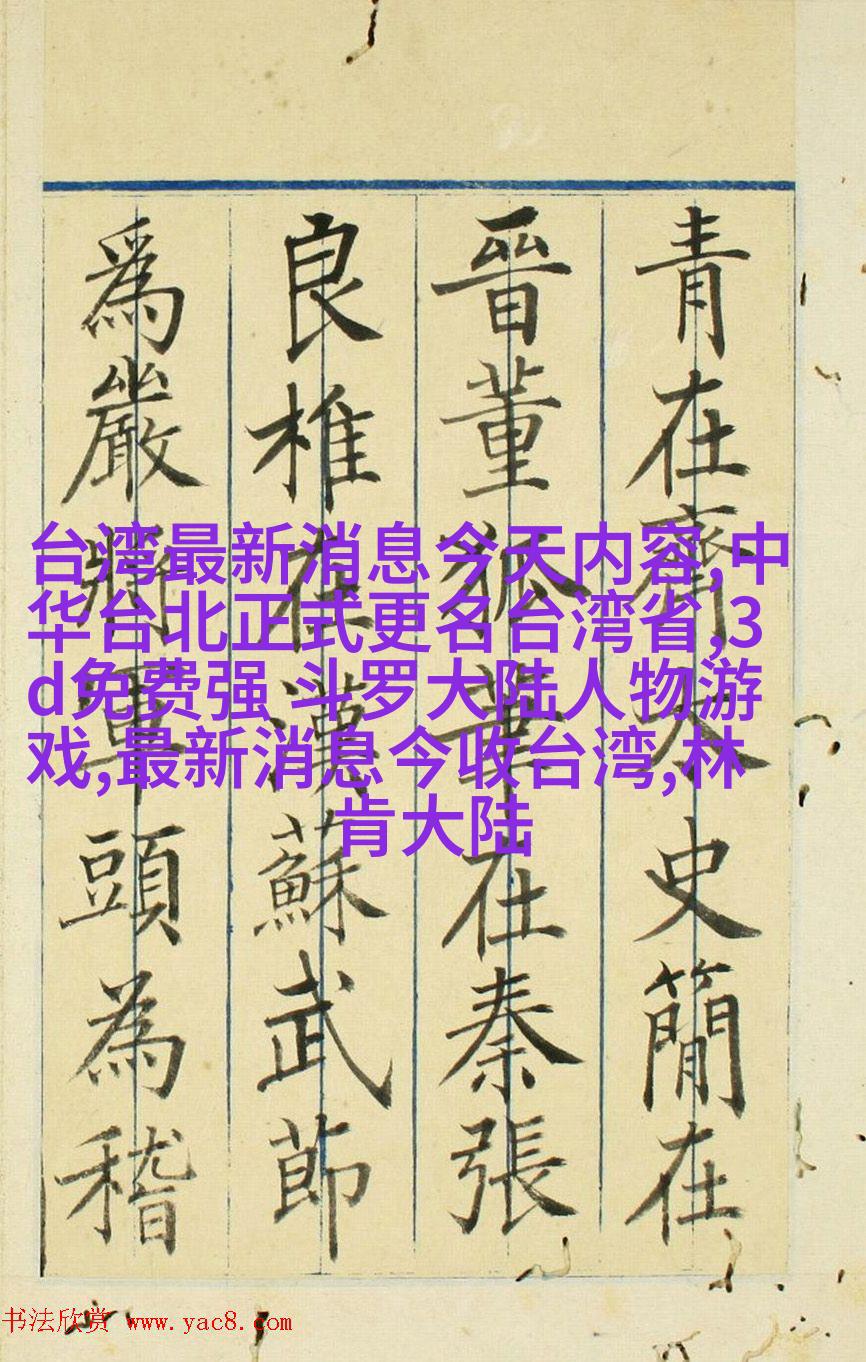 青在齊太史簡在
晉董狐筆在秦張
良椎在漢蘇武節
爲嚴將軍頭為稽
台湾最新消息今天内容,中
华台北正式更名台湾省,3
d免费强 斗罗大陆人物游
戏,最新消息今收台湾,林
肯大陆
书法欣赏 www.yac8.com